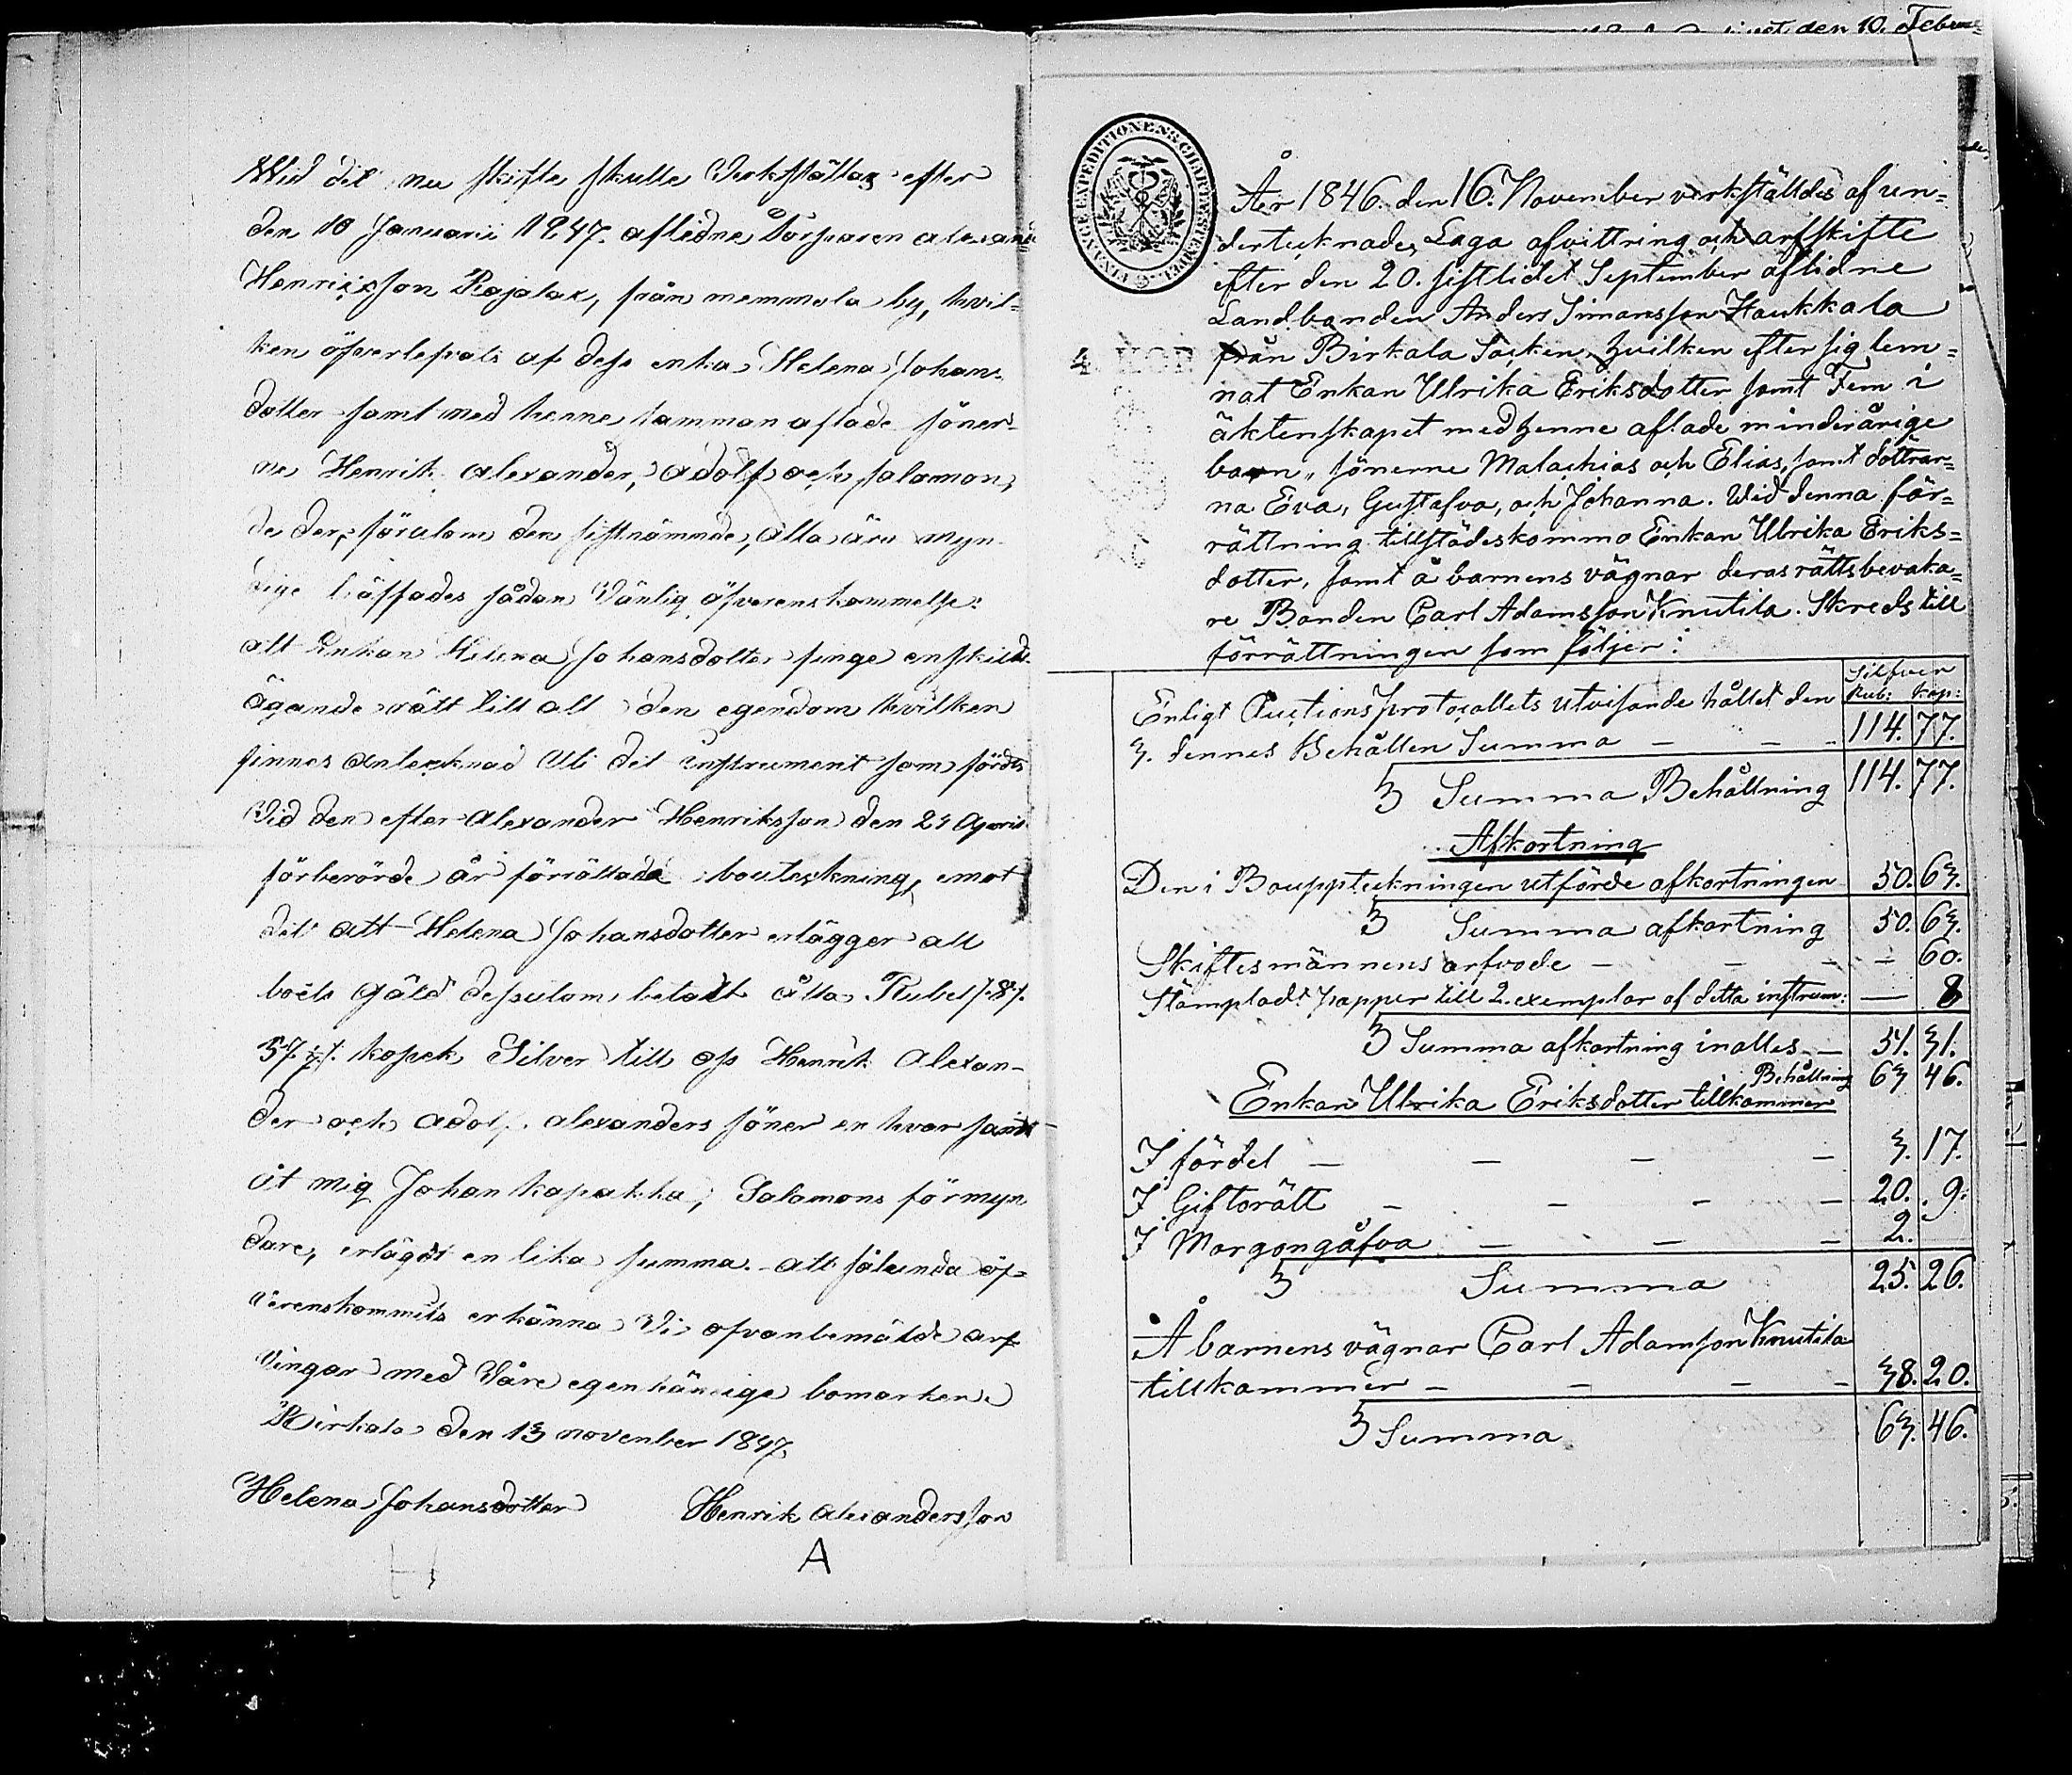 Wid det nu skifte skulle Verkställas efter
den 10 Januarii 1847. aflidne Torparen alexand
Henriksson Rajalax, från memmola by, hvil-
ken öfverlefvats af dess enka Helena Johans
dotter samt med henne samman aflade söner-
ne Henrik, alexander, adolf och salamon,
de der, förutom den sistnämnde, alla äro myn
dige träffades sådan Vänlig öfverenskommelse:
att Enkan Helena Johansdotter finge enskildt
ägande rätt till all den egendom hvilken
finnes antecknad Uti det instrument som fördts
Vid den efter Alexander Henriksson den 21 April
förberörde år förrättade bouteckning, emot
det att Helena Johansdotter erlägger all
boets gäld dessutom betalt åtta Rubel /:8:/.
57 kopek Silver till oss Henrik Alexan-
der och adolf. alexanders söner en hvar samt
åt mig Johan kapakka, Salamons förmyn
dare, erlägdt en lika summa. att sålunda öf-
verenskommits erkänna Vi ofvanbemälde arf
vingar med Våre egenhändige bomärken.
Birkala den 13 november 1847.
Helena Johansdotter Henrik alexandersson
H A
den 10. Februa=
FINANCE EXPEDITIONENS CHARTÆ STEMPEL
4 KOP
År 1846. den 16. November verkställdes af un=
dertecknade, Laga afvittring och arfskifte
efter den 20. sistlidet September aflidne
Landbonden Anders Simonsson Haukkala
från Birkala Socken, hvilken efter sig lem=
nat Enkan Ulrika Eriksdotter samt Fem i
äktenskapet med henne aflade minderårige
barn, sönerne Malachias och Elias, samt döttrar=
na Eva, Gustafva, och Johanna. Wid denna för=
rättning tillstädeskommo Enkan Ulrika Eriks=
dotter, samt å barnens vägnar deras rättsbevaka=
re Bonden Carl Adamsson Knutila. Skreds till
förrättningen som följer:
Silfver
Rub: kop:
Enligt Auctions protocollets utvisande hållet den
3. dennes Behållen Summa — — 114. 77.
Summa Behållning 114. 77.
Afkortning
Den i Bouppteckningen utförde afkortningen 50. 63.
Summa afkortning 50. 63.
Skiftesmännens arfvode — — — — 60.
Stämpladt papper till 2. exemplar af detta instrum: — 8
Summa afkortning inalles — 51. 31.
Behållning 63 46.
Enkan Ulrika Eriksdotter tillkommer
I fördel — — — — 3. 17.
I Giftorätt — — — — 20. 9.
I Morgongåfva — — — 2.
Summa 25. 26.
Å barnens vägnar Carl Adamsson Knutila
tillkommer — — — — 38. 20.
Summa 63. 46.